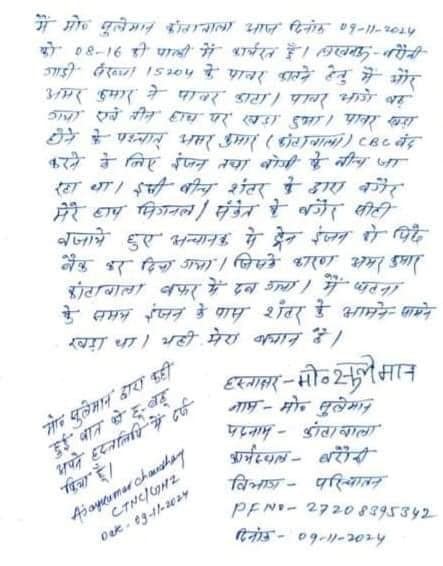 मैं मो० सुलेमान कांटावाला आज दिनांक 09-11-2024
को 08-16 की पाली में कार्यरत हूँ। लखनऊ-बरौनी
गाड़ी संख्या 15204 के पावर काटने हेतु मैं और
अमर कुमार ने पावर काटा। पावर आगे बढ़
गया एवं तीन हाथ पर खड़ा हुआ। पावर खड़ा
होने के पश्चात् अमर कुमार (कांटावाला) CBC बंद
करने के लिए इंजन तथा बोगी के बीच जा
रहा था। इसी बीच शंटर के द्वारा बगैर
मेरे हाथ सिगनल/संकेत के बगैर सीटी
बजाये हुए अचानक से ट्रेन इंजन को पिछे
बैक कर दिया गया। जिसके कारण अमर कुमार
कांटावाला बफर में दब गया। मैं घटना
के समय इंजन के पास शंटर के आमने-सामने
खड़ा था। यही मेरा बयान है।
मो० सुलेमान द्वारा कही
हुई बात को हू-बहू
अपने हस्तलिपि में दर्ज
किया हूँ।
Ajay Kumar Choudhary
CTNC/
Date- 09-11-2024
हस्ताक्षर - मो० सुलेमान
नाम - मो० सुलेमान
पदनाम - कांटावाला
कार्यस्थल - बरौनी
विभाग - परिचालन
PF NO - 27208395342
दिनांक - 09-11-2024